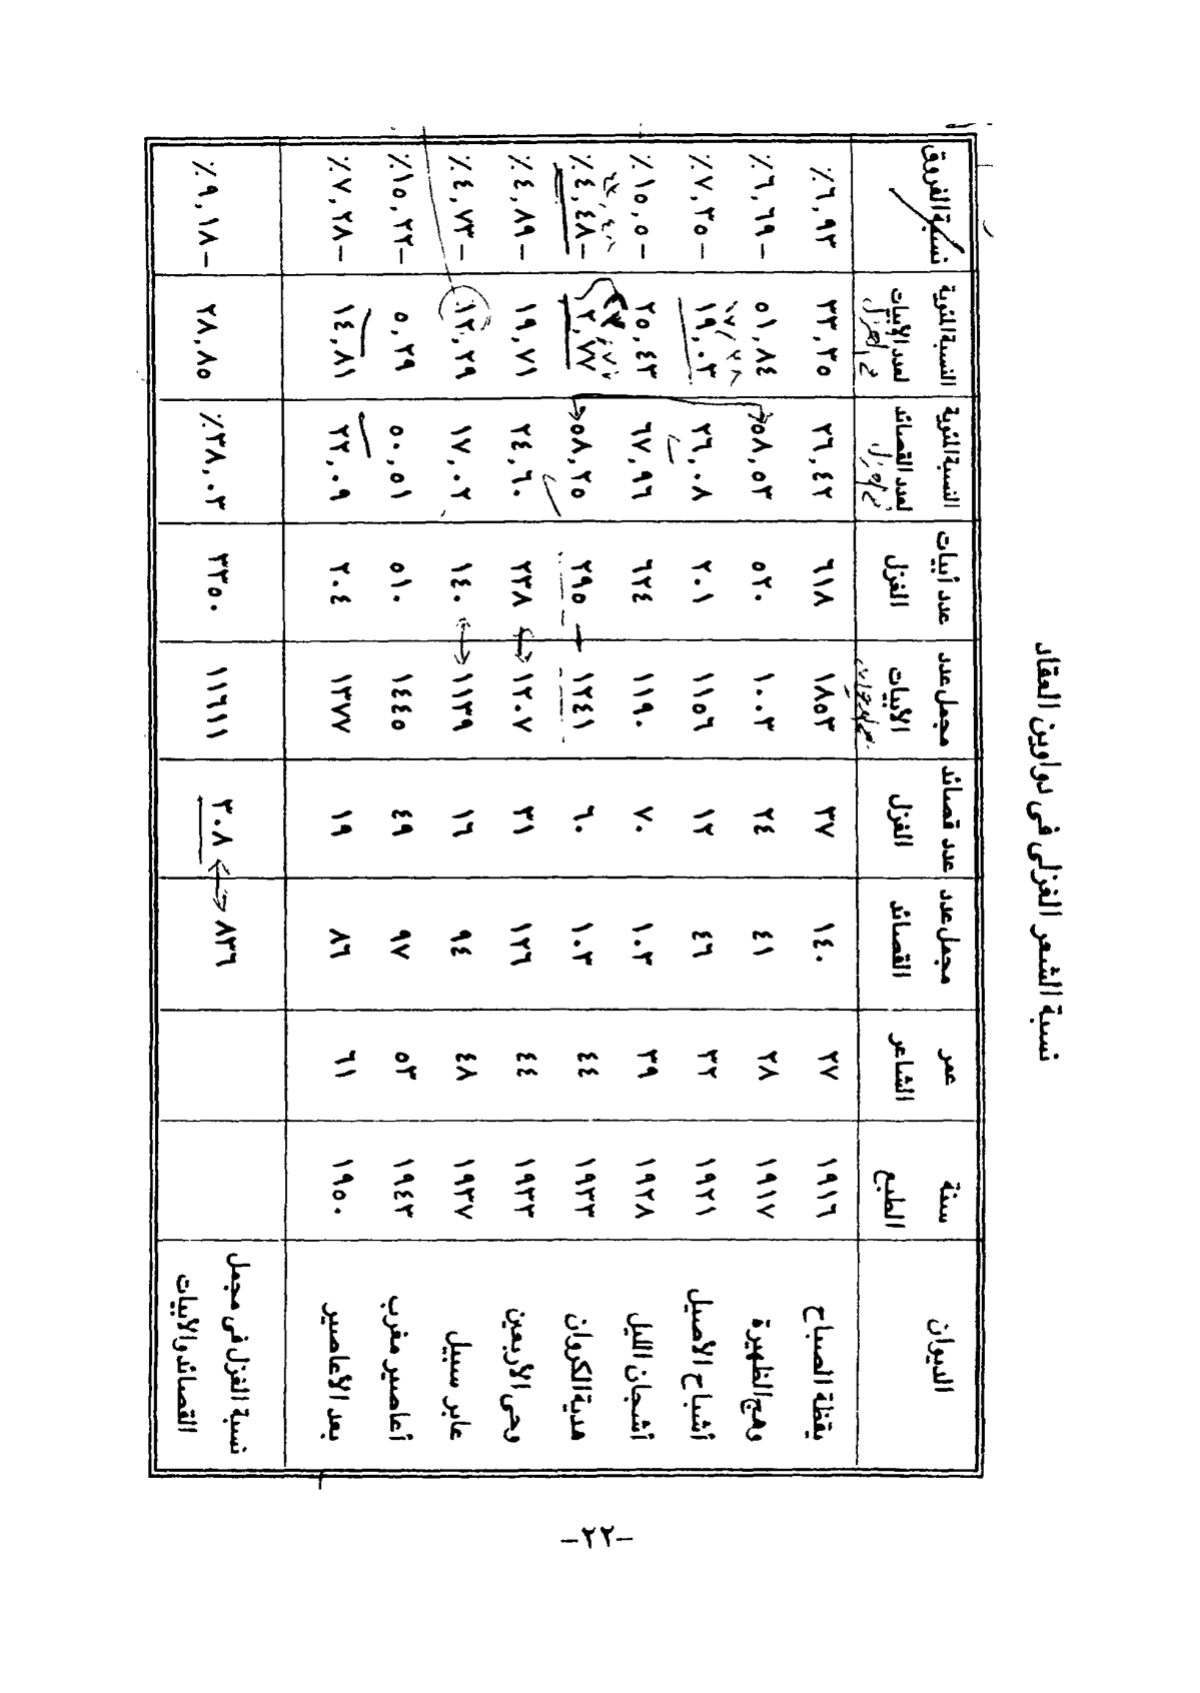 نسبة الشعر الغزلى فى دواوين العقاد
الديوان | سنة الطبع | عمر الشاعر | مجمل عدد القصائد | عدد قصائد الغزل | مجمل عدد الأبيات | عدد أبيات الغزل | النسبة المئوية لعدد القصائد | النسبة المئوية لعدد الأبيات | نسبة الفروق
يقظة الصباح | ١٩١٦ | ٢٧ | ١٤٠ | ٣٧ | ١٨٥٣ | ٦١٨ | ٢٦,٤٢ | ٣٣,٣٥ | ٦,٩٣٪
وهج الظهيرة | ١٩١٧ | ٢٨ | ٤١ | ٢٤ | ١٠٠٣ | ٥٢٠ | ٥٨,٥٣ | ٥١,٨٤ | –٦,٦٩٪
أشباح الأصيل | ١٩٢١ | ٣٢ | ٤٦ | ١٢ | ١١٥٦ | ٢٠١ | ٢٦,٠٨ | ١٩,٠٣ | –٧,٣٥٪
أشجان الليل | ١٩٢٨ | ٣٩ | ١٠٣ | ٧٠ | ١١٩٠ | ٦٢٤ | ٦٧,٩٦ | ٢٥,٤٣ | –١٥,٥٪
هدية الكروان | ١٩٣٣ | ٤٤ | ١٠٣ | ٦٠ | ١٢٤١ | ٢٩٥ | ٥٨,٢٥ | ٢,٧٧ | –٤,٤٨٪
وحى الأربعين | ١٩٣٣ | ٤٤ | ١٢٦ | ٣١ | ١٢٠٧ | ٢٣٨ | ٢٤,٦٠ | ١٩,٧١ | –٤,٨٩٪
عابر سبيل | ١٩٣٧ | ٤٨ | ٩٤ | ١٦ | ١١٣٩ | ١٤٠ | ١٧,٠٢ | ١٢,٢٩ | –٤,٧٣٪
أعاصير مغرب | ١٩٤٣ | ٥٣ | ٩٧ | ٤٩ | ١٤٤٥ | ٥١٠ | ٥٠,٥١ | ٥,٢٩ | –١٥,٢٢٪
بعد الأعاصير | ١٩٥٠ | ٦١ | ٨٦ | ١٩ | ١٣٧٧ | ٢٠٤ | ٢٢,٠٩ | ١٤,٨١ | –٧,٢٨٪
نسبة الغزل فى مجمل القصائد والأبيات | ٨٣٦ | ٣٠٨ | ١١٦١١ | ٣٣٥٠ | ٣٨,٠٣٪ | ٢٨,٨٥ | –٩,١٨٪
–٢٢–